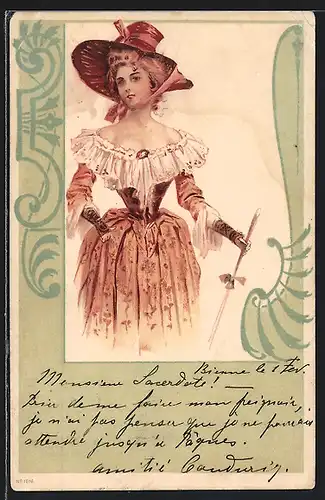 Bienne le 1 Fev.
Monsieur Sacerdote! —
de me faire mon peignoir,
je n'ai pas penser que je ne pourrai
attendre jusqu'à Pâques.
amitié